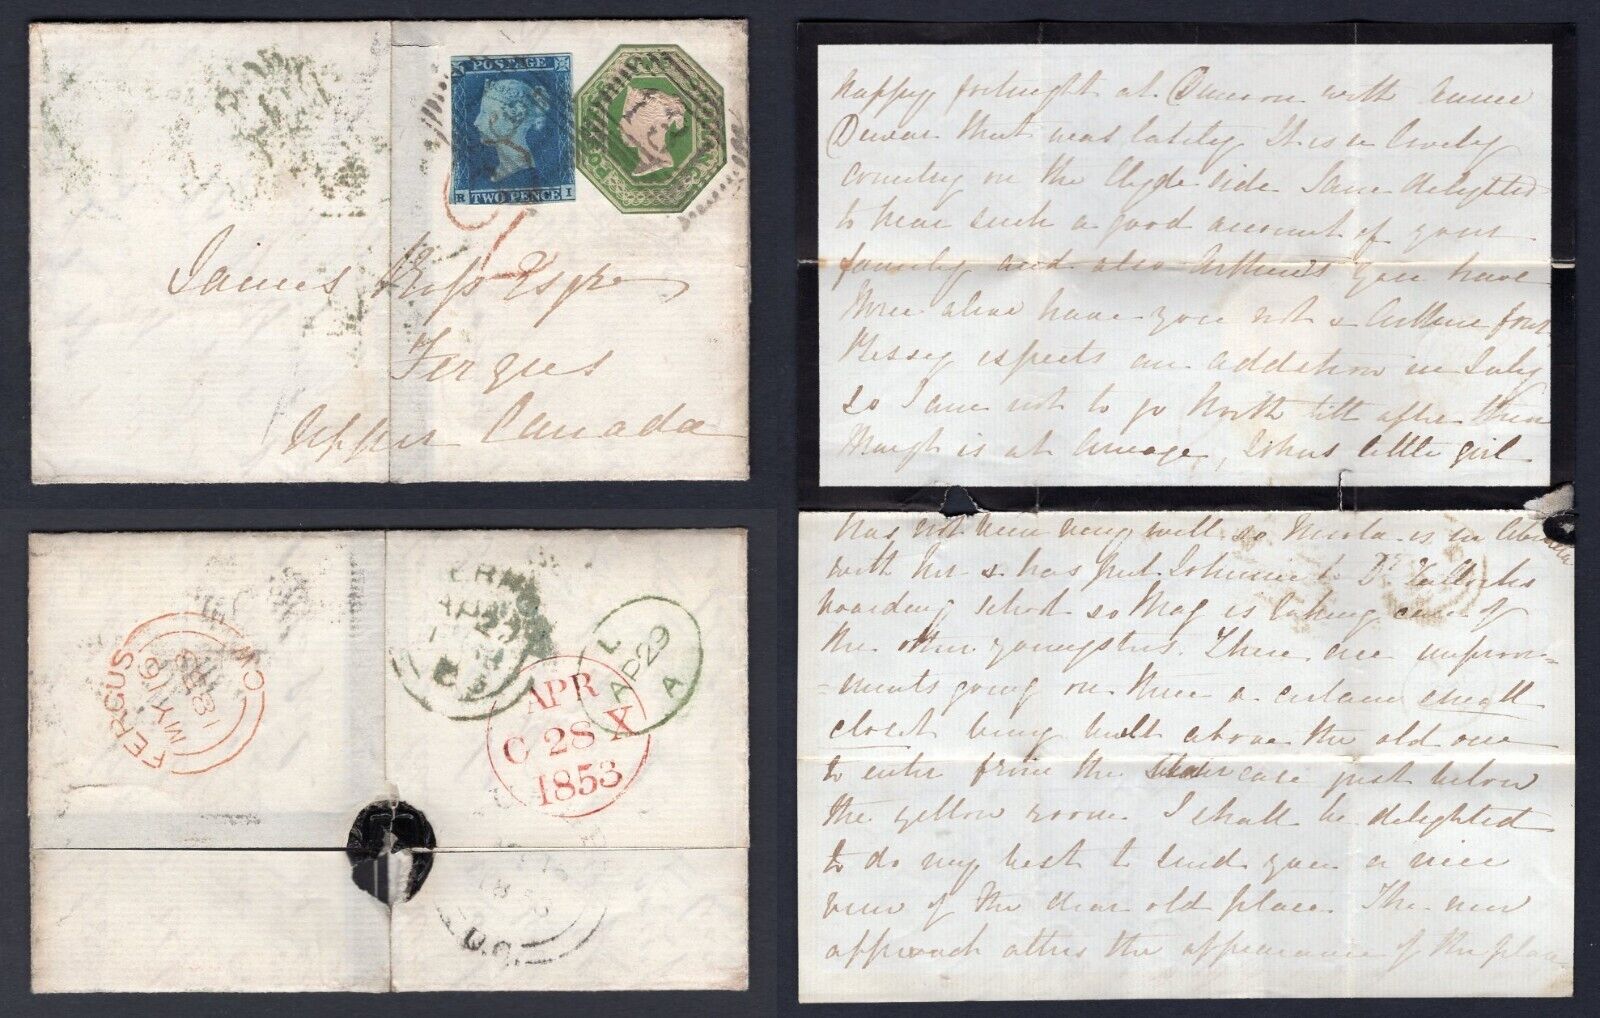 POSTAGE
R TWO PENCE I
James Ross Esqre
Fergus
Upper Canada
FERGUS
MY 19
1853
U.C.
AP 29
APR
C 28 X
1853
L
AP 29
A
happy fortnight at Dunoon with
Dewar that was lately It is a lovely
Country on the Clyde side I am delighted
to hear such a good account of your
family and also Arthur's you have
three alive have you not & Arthur four
Bessy expects an addition in July
so I am not to go North till after then
Margt is at , Johns little girl
has not been very well so is in
with her & has put Johnnie to Dr Tulloch's
boarding school so Mag is taking care of
the other youngsters. There are improve-
ments going on there a certain small
closet being built above the old one
to enter from the stair case just below
the yellow room. I shall be delighted
to do my best to send you a nice
view of the dear old place. The new
approach alters the appearance of the place